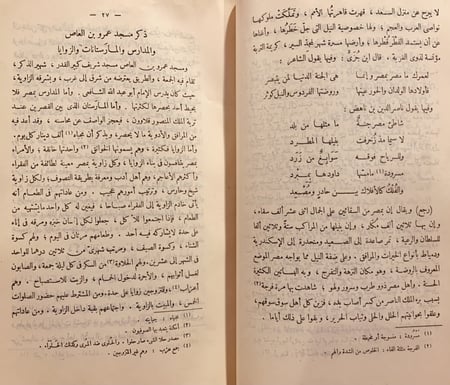 لا يبرح عن منزل السعد، قهرت قاهرتها الأمم، وتملكت ملوكها
نواصي العرب والعجم، ولها خصوصية النيل التي جل خطرها، وأغناها
عن أن يستمد القطر قطرها، وأرضها مسيرة شهر لمجد السير، كريمة التربة
مؤنسة لذوي الغربة. قال ابن جزي: وفيها يقول الشاعر:
لعمرك ما مصر بمصر وإنما هي الجنة الدنيا لمن يتبصر
فأولادها الولدان والحور عينها وروضتها الفردوس والنيل كوثر
وفيها يقول ناصر الدين بن ناهض:
شاطئ مصر جنة ما مثلها من بلد
لا سيما مذ زخرفت بنيلها المطرد
وللرياح فوقه سوابغ من زرد
مسرودة (١) ما مسها داودها بمبرد
والفلك كالأفلاك بين حادر ومصعد
(رجع) ويقال إن بمصر من السقائين على الجمال اثنى عشر ألف سقاء،
وإن بها ثلاثين ألف مكار، وإن بنيلها من المراكب ستة وثلاثين ألفا
للسلطان والرعية، تمر صاعدة إلى الصعيد ومنحدرة إلى الإسكندرية
ودمياط بأنواع الخيرات والمرافق. وعلى ضفة النيل مما يواجه مصر الموضع
المعروف بالروضة، وهو مكان النزهة والتفرج، وبه البساتين الكثيرة
الحسنة. وأهل مصر ذوو طرب وسرور ولهو. شاهدت بها مرة فرجة (٢)
بسبب برء الملك الناصر من كسر أصاب يده، فزين كل أهل سوق سوقهم،
وعلقوا بحوانيتهم الحلل والحلي وثياب الحرير، وبقوا على ذلك أياما.
(١) مسرودة: منسوجة أو محبوكة.
(٢) الفرجة مثلثة الفاء: الخلوص من الشدة والهم.
— ٢٧ —
ذكر مسجد عمرو بن العاص
والمدارس والمارستانات والزوايا
ومسجد عمرو بن العاص مسجد شريف كبير القدر، شهير الذكر،
تقام فيه الجمعة، والطريق يعترضه من شرق إلى غرب، وبشرقه الزاوية،
حيث كان يدرس الإمام أبو عبد الله الشافعي. وأما المدارس بمصر فلا
يحيط أحد بحصرها لكثرتها. وأما المارستان الذي بين القصرين عند
تربة الملك المنصور قلاوون، فيعجز الواصف عن محاسنه، وقد أعد فيه
من المرافق والأدوية ما لا يحصر، ويذكر أن مجباه (١) ألف دينار كل يوم.
وأما الزوايا فكثيرة، وهم يسمونها الخوانق (٢) واحدتها خانقة، والأمراء
بمصر يتنافسون في بناء الزوايا، وكل زاوية بمصر معينة لطائفة من الفقراء
وأكثرهم الأعاجم، وهم أهل أدب ومعرفة بطريقة التصوف، ولكل زاوية
شيخ وحارس، وترتيب أمورهم عجيب. ومن عاداتهم في الطعام أنه
يأتي خادم الزاوية إلى الفقراء صباحا، فيعين له كل واحد ما يشتهيه من
الطعام، فإذا اجتمعوا للأكل، جعلوا لكل إنسان خبزه ومرقه في إناء
على حدة لا يشاركه فيه أحد. وطعامهم مرتان في اليوم، ولهم كسوة
الشتاء، وكسوة الصيف، ومرتب شهري من ثلاثين درهما للواحد
في الشهر إلى عشرين. ولهم الحلاوة (٣) من السكر في كل ليلة جمعة، والصابون
لغسل أثوابهم، والأجرة لدخول الحمام، والزيت للاستصباح. وهم
أعزاب (٤)، وللمتزوجين زوايا على حدة. ومن المشترط عليهم حضور الصلوات
الخمس، والمبيت بالزاوية. واجتماعهم بقبة داخل الزاوية. ومن عاداتهم